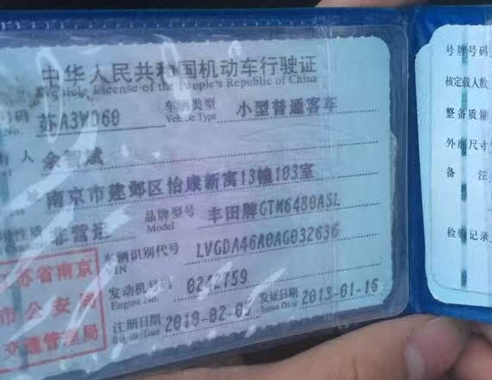 中华人民共和国机动车行驶证
Vehicle License of the People's Republic of China
号码
No.
苏A3WD60
车辆类型
Vehicle Type
小型普通客车
人
南京市建邺区怡康新寓13幢103室
性质
非营运
品牌型号
Model
丰田牌GTM6480ASL
车辆识别代号
VIN
LVGDA46A0AG032636
发动机号码
Engine No.
0242759
注册日期
2010-02-0
发证日期
Issue Date
2013-01-16
江苏省南京
市公安局
交通管理局
号牌号码
核定载人数
整备质量
外廓尺寸
备 注
检验记录